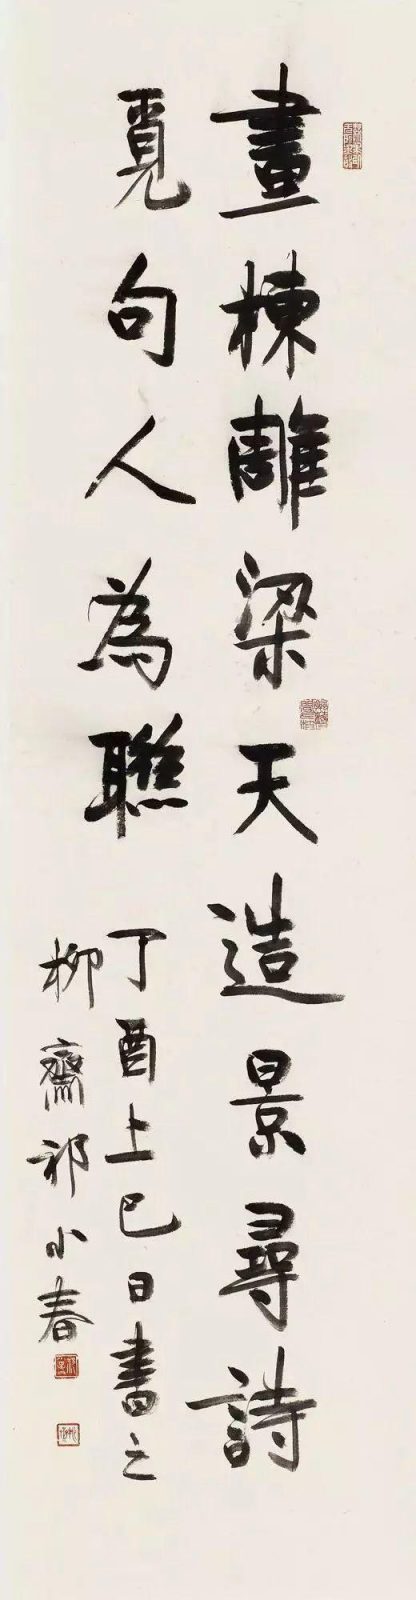 畫棟雕梁天造景尋詩
覓句人為聯
丁酉上巳日書之
柳齋祁小春